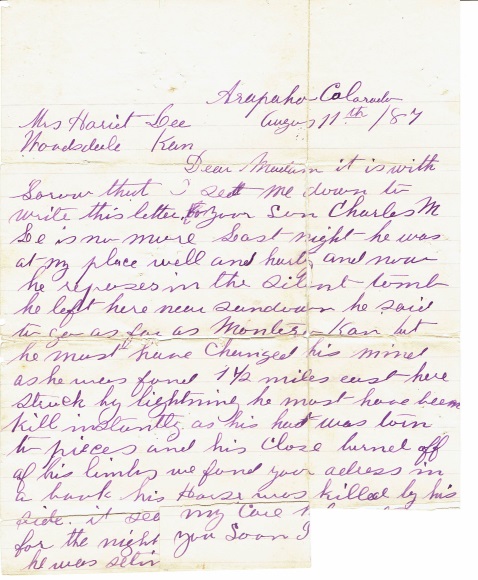 Arapaho Colorado
Augus 11th /87
Mrs Hariet Lee
Woodsdale Kan
Dear Madam it is with
Sorow that I sett me down to
write this letter for your Son Charles M
Lee is no more Last night he was
at my place well and harty and now
he reposes in the silent tomb
he left here near sundown he said
to go as far as Kan but
he must have Changed his mind
as he was fond 1 1/2 miles east here
Struck by lightning he must have been
Kill instantly as his hat was torn
to pieces and his Close burned off
of his limbs we fond your adress in
a book his Horse was killed by his
side. it see my Care
for the night you Soon I
he was